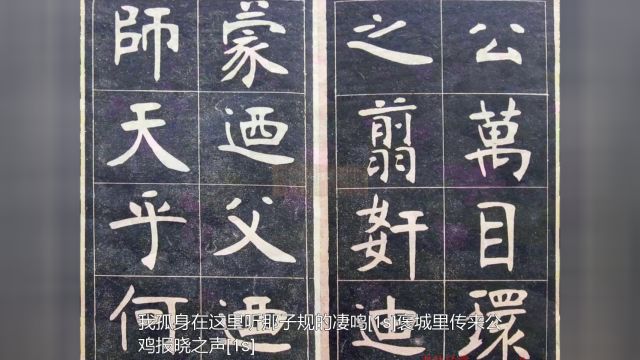 公萬目環
之翦奸迪
蒙迺父
師天乎何
我孤身在这里听那子规的凄鸣[1s]褒城里传来公
鸡报晓之声[1s]